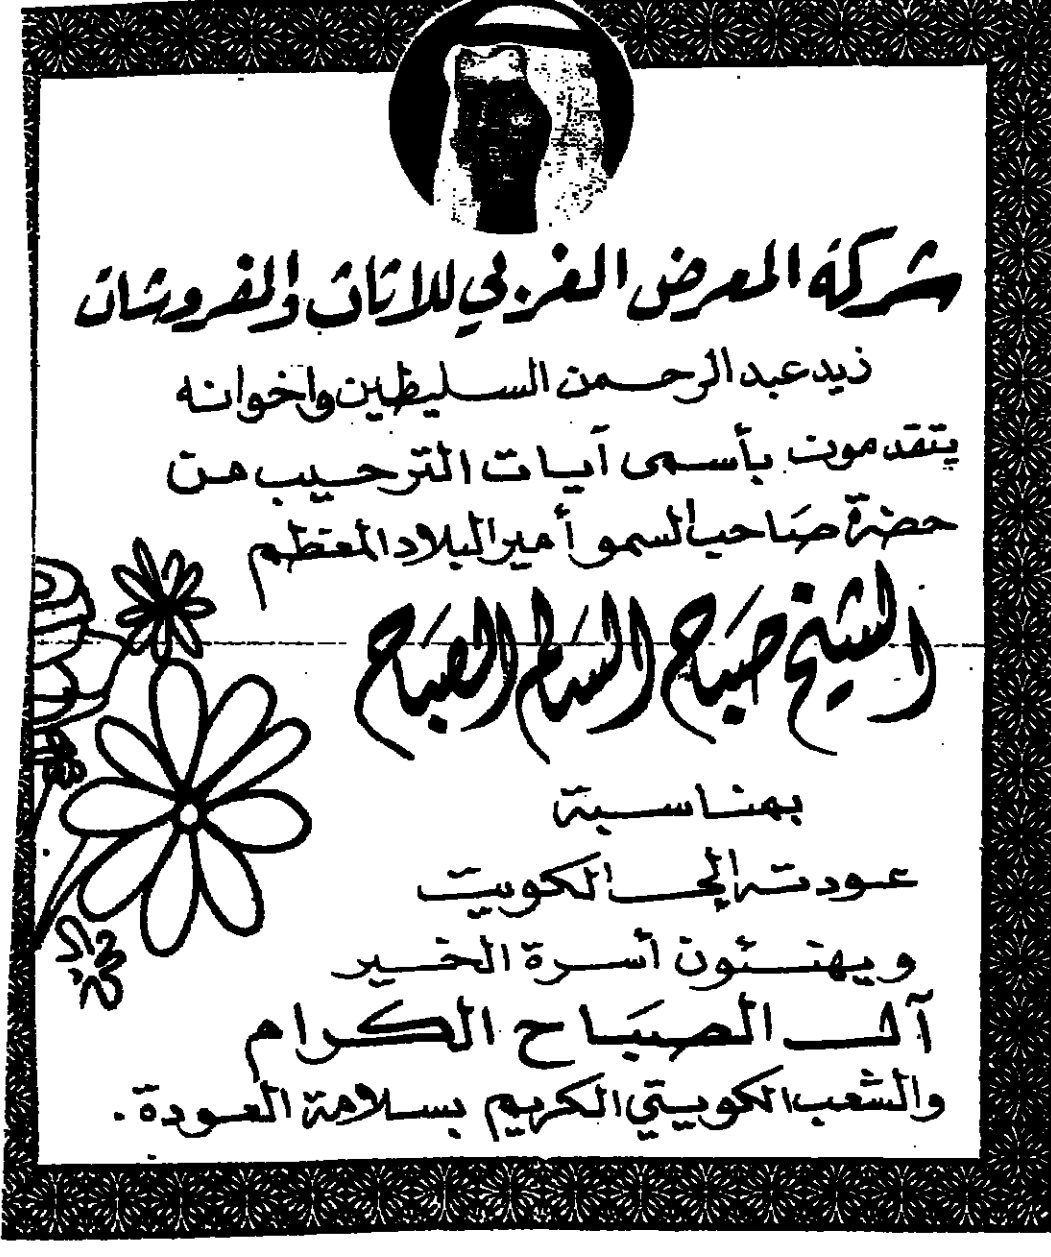 شركة المعرض الغربي للاثاث والمفروشات
زيد عبد الرحمن السليطين واخوانه
يتقدمون بأسمى آيات الترحيب من
حضرة صاحب السمو أمير البلاد المعظم
الشيخ صباح السالم الصباح
بمناسبة
عودته إلى الكويت
ويهنئون أسرة الخير
آل الصباح الكرام
والشعب الكويتي الكريم بسلامة العودة .